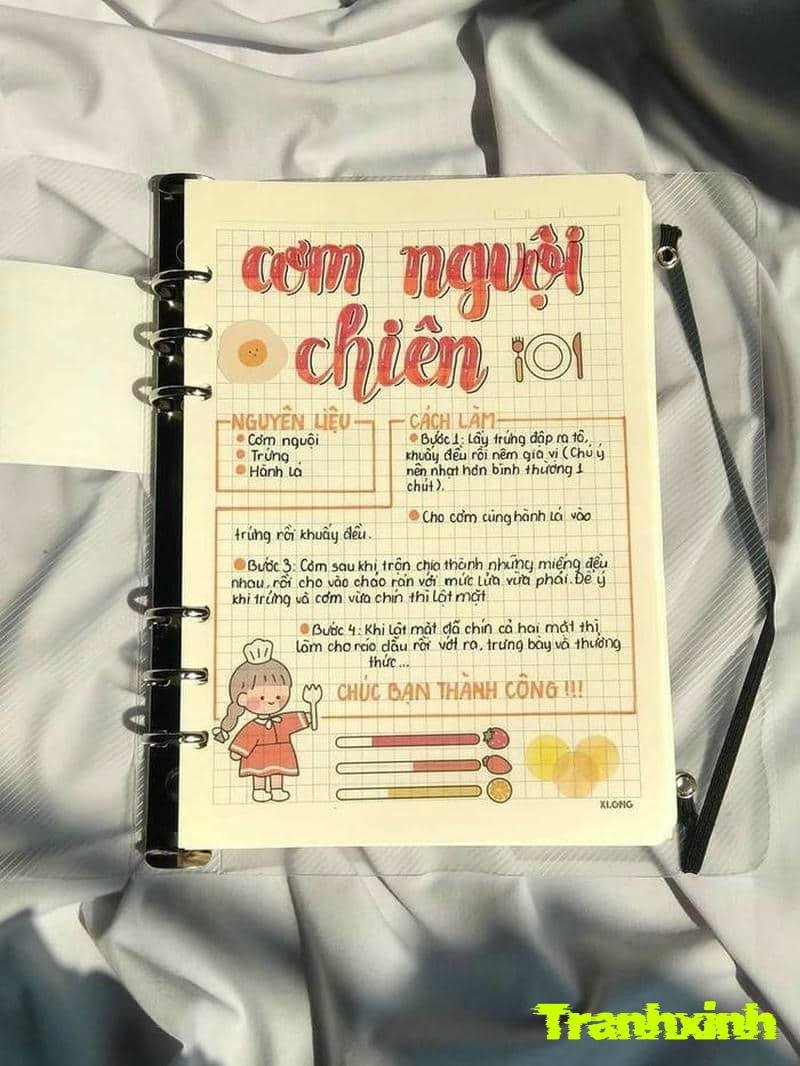 cơm nguội
chiên
NGUYÊN LIỆU
Cơm nguội
Trứng
Hành lá
CÁCH LÀM
Bước 1: Lấy trứng đập ra tô,
khuấy đều rồi nêm gia vị (Chú ý
nên nhạt hơn bình thường 1
chút).
Cho cơm cùng hành lá vào
trứng rồi khuấy đều.
Bước 3: Cơm sau khi trộn chia thành những miếng đều
nhau, rồi cho vào chảo rán với mức lửa vừa phải. Để ý
khi trứng và cơm vừa chín thì lật mặt
Bước 4: Khi lật mặt đã chín cả hai mặt thì
làm cho ráo dầu rồi vớt ra, trưng bày và thưởng
thức...
CHÚC BẠN THÀNH CÔNG !!!
XI.ONG
Tranhxinh